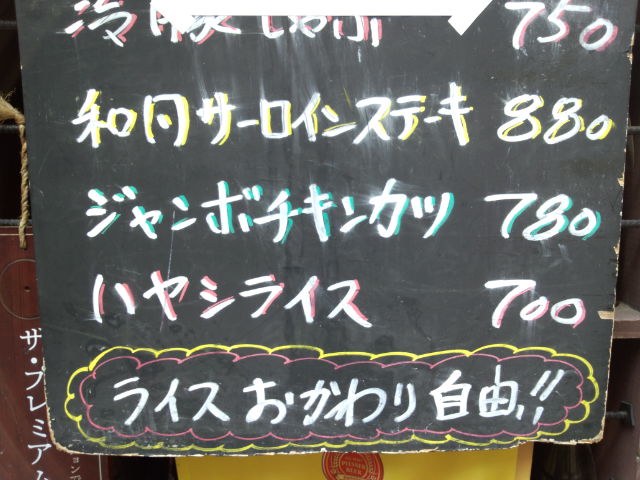 冷豚しゃぶ 750
和月サーロインステーキ 880
ジャンボチキンカツ 780
ハヤシライス 700
ライスおかわり自由!!
ザ・プレミアム
PILSNER
BEER